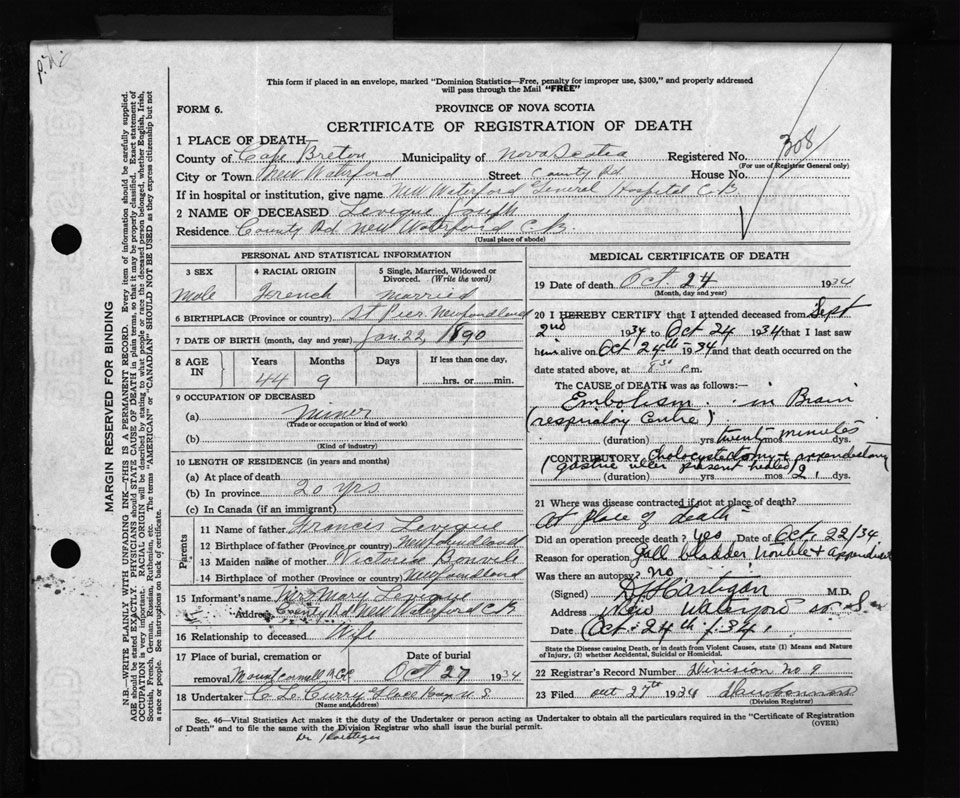 This form if placed in an envelope, marked "Dominion Statistics—Free, penalty for improper use, $300," and properly addressed
will pass through the Mail "FREE"
FORM 6.
PROVINCE OF NOVA SCOTIA
CERTIFICATE OF REGISTRATION OF DEATH
308
1 PLACE OF DEATH—
County of Cape Breton Municipality of Nova Scotia Registered No.
(For use of Registrar General only)
City or Town New Waterford Street County Rd House No.
If in hospital or institution, give name New Waterford General Hospital C.B.
2 NAME OF DECEASED Levique Joseph
Residence County Rd New Waterford C.B.
(Usual place of abode)
PERSONAL AND STATISTICAL INFORMATION
3 SEX 4 RACIAL ORIGIN 5 Single, Married, Widowed or Divorced. (Write the word)
Male French Married
6 BIRTHPLACE (Province or country) St Pier. Newfoundland
7 DATE OF BIRTH (month, day and year) Jan. 22, 1890
8 AGE IN Years Months Days If less than one day,
44 9 hrs. or min.
9 OCCUPATION OF DECEASED
(a) Miner
(Trade or occupation or kind of work)
(b)
(Kind of industry)
10 LENGTH OF RESIDENCE (in years and months)
(a) At place of death
(b) In province 20 yrs
(c) In Canada (if an immigrant)
Parents
11 Name of father Francis Levique
12 Birthplace of father (Province or country) Newfoundland
13 Maiden name of mother Victoria
14 Birthplace of mother (Province or country) Newfoundland
15 Informant's name Mrs Mary Levique
Address County Rd New Waterford C.B
16 Relationship to deceased Wife
17 Place of burial, cremation or Date of burial
removal Oct 27 1934
18 Undertaker Curry Glace Bay N S
(Name and address)
MEDICAL CERTIFICATE OF DEATH
19 Date of death Oct 24 1934
(Month, day and year)
20 I HEREBY CERTIFY that I attended deceased from Sept
2nd 1934 to Oct 24 1934 that I last saw
him alive on Oct 24th 1934 and that death occurred on
date stated above, at 8 30 m.
The CAUSE OF DEATH was as follows:—
Embolism in Brain
(respiratory Centre)
(duration) yrs twenty mos minutes dys.
CONTRIBUTORY Cholocystectomy + appendectomy
(gastric ulcer present healed)
(duration) yrs mos 2 dys.
21 Where was disease contracted if not at place of death?
At place of death
Did an operation precede death? yes Date of Oct. 22/34
Reason for operation Gall bladder trouble + appendix
Was there an autopsy? no
(Signed) Hartigan M.D.
Address New Waterford N. S.
Date Oct. 24th /34.
State the Disease causing Death, or in death from Violent Causes, state (1) Means and Nature of Injury, (2) whether Accidental, Suicidal or Homicidal.
22 Registrar's Record Number Division No 9
23 Filed Oct 27th 1934
(Division Registrar)
Sec. 46—Vital Statistics Act makes it the duty of the Undertaker or person acting as Undertaker to obtain all the particulars required in the "Certificate of Registration
of Death" and to file the same with the Division Registrar who shall issue the burial permit. (OVER)
Dr Hartigan
MARGIN RESERVED FOR BINDING
N.B.—WRITE PLAINLY WITH UNFADING INK—THIS IS A PERMANENT RECORD. Every item of information should be carefully supplied.
AGE should be stated EXACTLY. PHYSICIANS should STATE CAUSE OF DEATH in plain terms, so that it may be properly classified. Exact statement of
OCCUPATION is very important. RACIAL ORIGIN will be described by stating to what people or race the deceased person belonged, whether English, Irish,
Scottish, French, German, Russian, Ruthenian, etc. The terms "AMERICAN" or "CANADIAN" SHOULD NOT BE USED as they express citizenship but not
a race or people. See instructions on back of certificate.